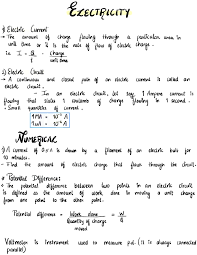 ELECTRICITY
1) Electric Current
→ The amount of charge flowing through a particular area in
unit time or it is the rate of flow of electric charge.
i.e. I = Q/t = Charge / unit time
2) Electric Circuit
→ A continuous and closed path of an electric current is called an
electric circuit.
- In an electric circuit, let say 1 Ampere current is
flowing that states 1 coulomb of charge flowing in 1 second.
• Small quantities of current
1 mA = 10⁻³ A
1 μA = 10⁻⁶ A
NUMERICAL
A current of 0.5 A is drawn by a filament of an electric bulb for
10 minutes.
Find the amount of electric charge that flows through the circuit.
• Potential Differences
→ The potential difference between two points in an electric circuit
is defined as the amount of work done in moving a unit charge
from one point to the other point.
Potential difference = Work done / Quantity of charge moved = W/Q
Voltmeter is Instrument used to measure p.d. (It is always connected
parallel)